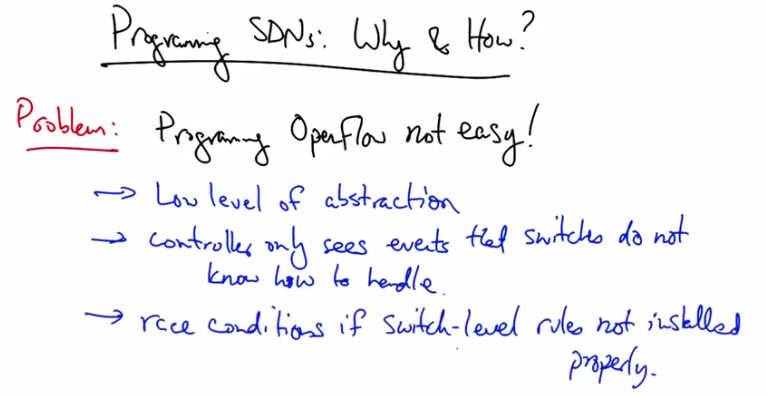 Programing SDNs: Why & How?
Problem: Programing Openflow not easy!
→ Low level of abstraction
→ controller only sees events that switches do not
know how to handle.
→ race conditions if switch-level rules not installed
properly.